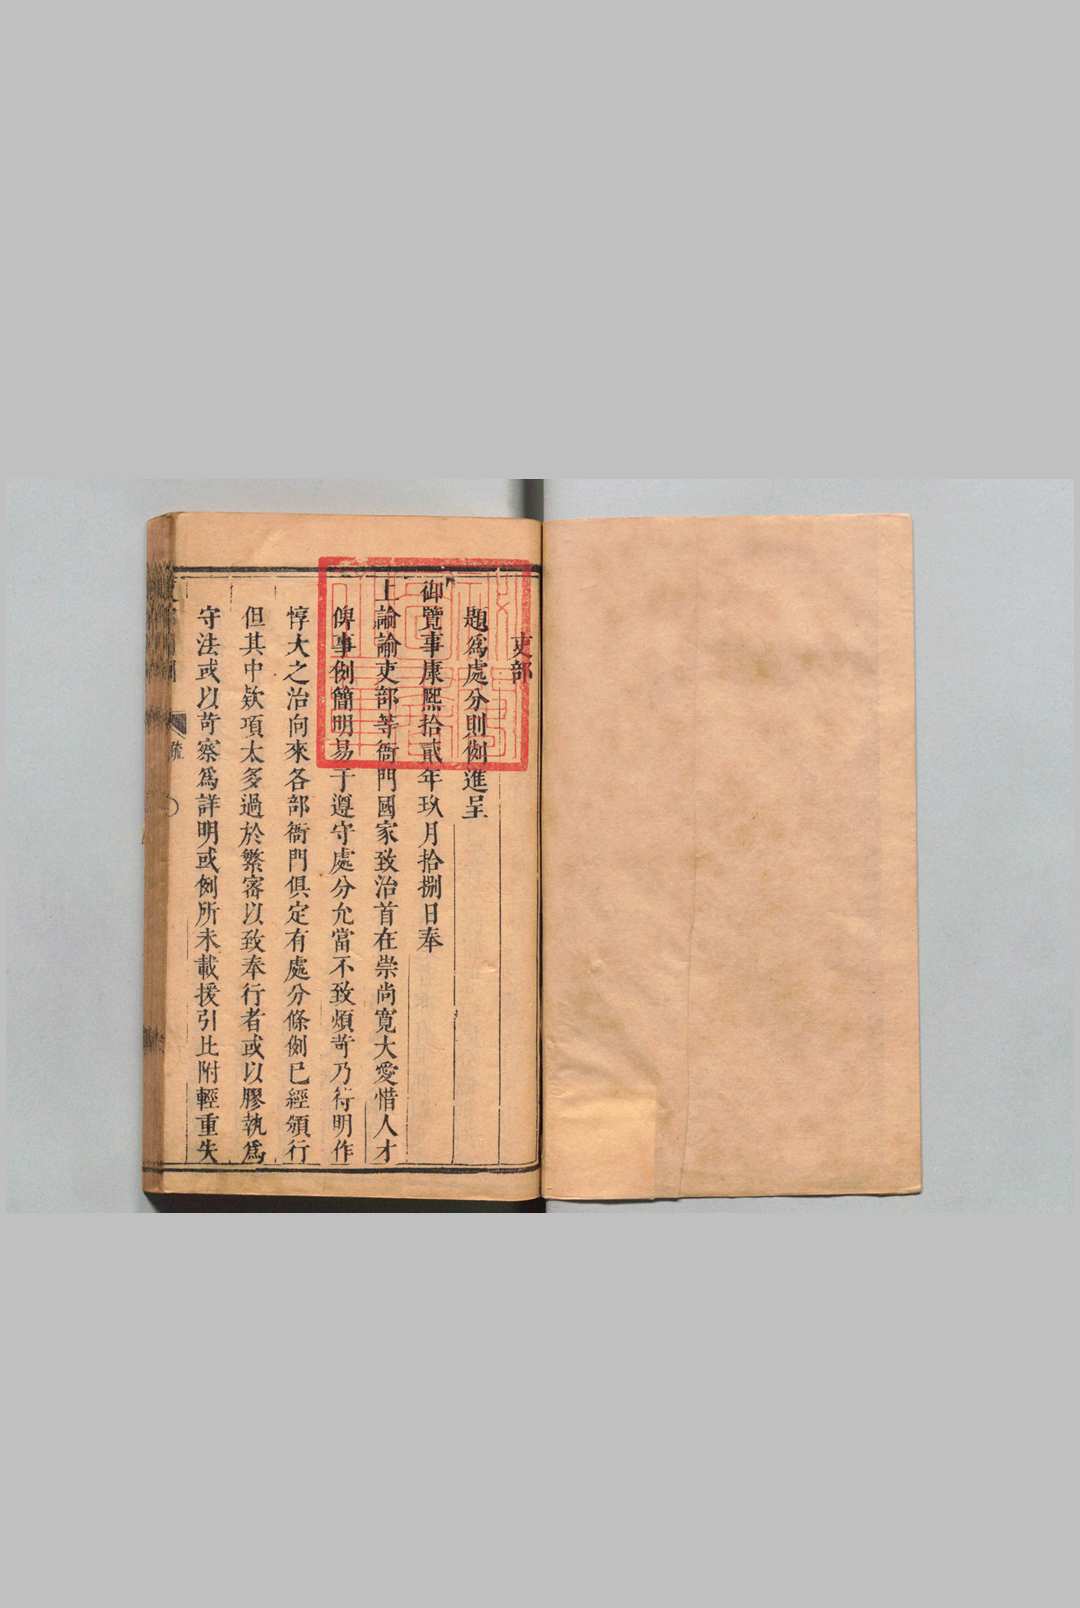 吏部
題為處分則例進呈
御覽事康熙拾貳年玖月拾捌日奉
上諭諭吏部等衙門國家致治首在崇尚寬大愛惜人才
俾事例簡明易于遵守處分允當不致煩苛乃行明作
惇大之治向來各部衙門俱定有處分條例已經頒行
但其中欵項太多過於繁密以致奉行者或以膠執為
守法或以苛察為詳明或例所未載援引比附輕重失
疏